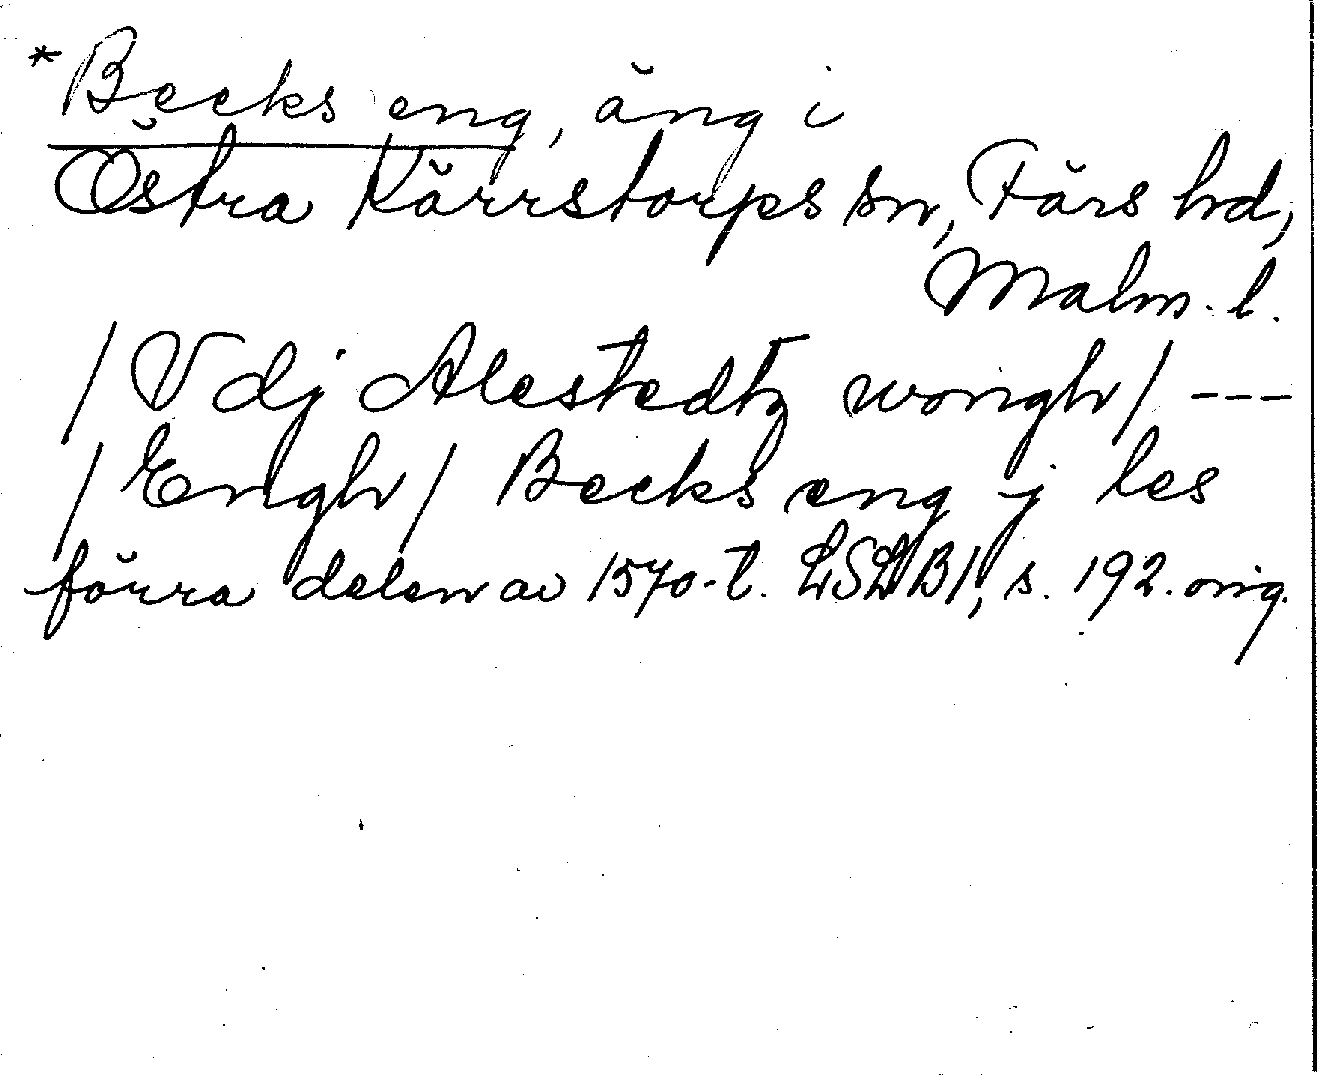 *Becks eng, äng i
Östra Kärrstorps sn, Färs hd,
Malm. l.
/Vdj Alestedtz wongh/ ---
/Engh/ Becks eng j les
förra delen av 1570-t. LSLB1, s. 192. orig.